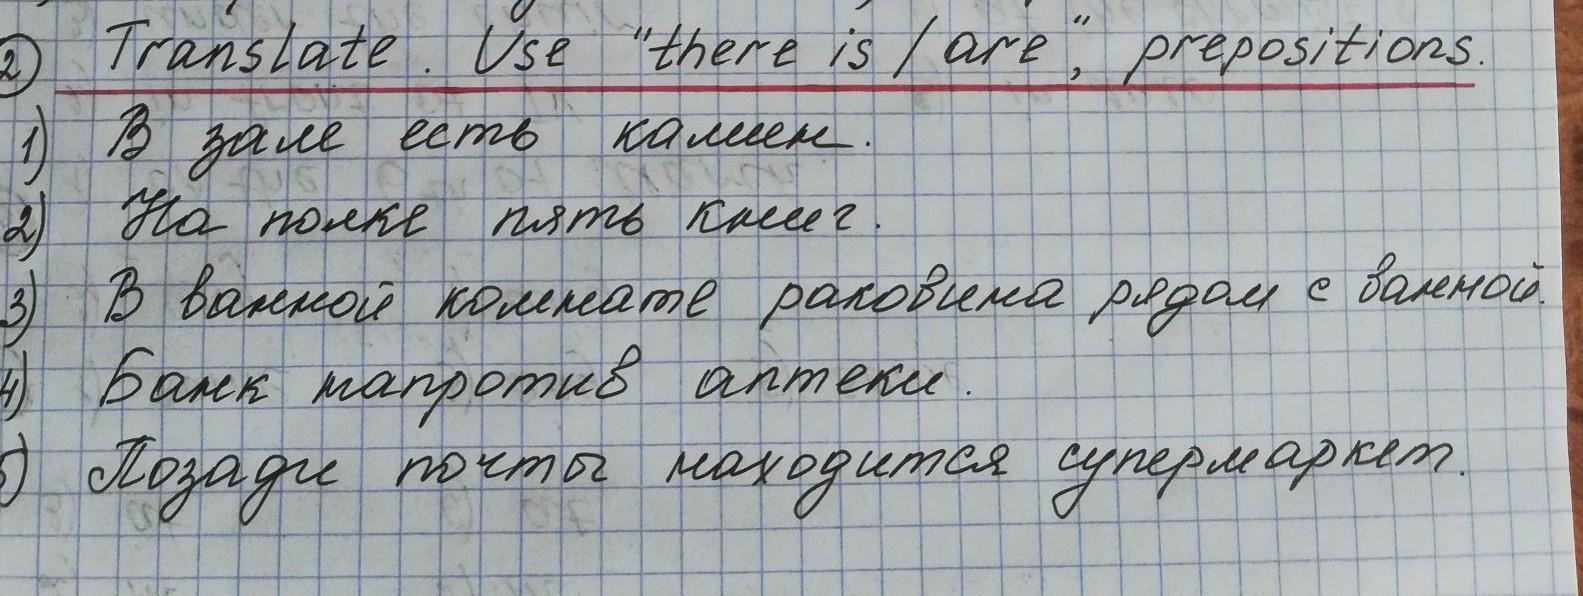 2) Translate. Use "there is / are", prepositions.
1) В зале есть камин.
2) На полке пять книг.
3) В ванной комнате раковина рядом с ванной.
4) Банк напротив аптеки.
5) Позади почты находится супермаркет.